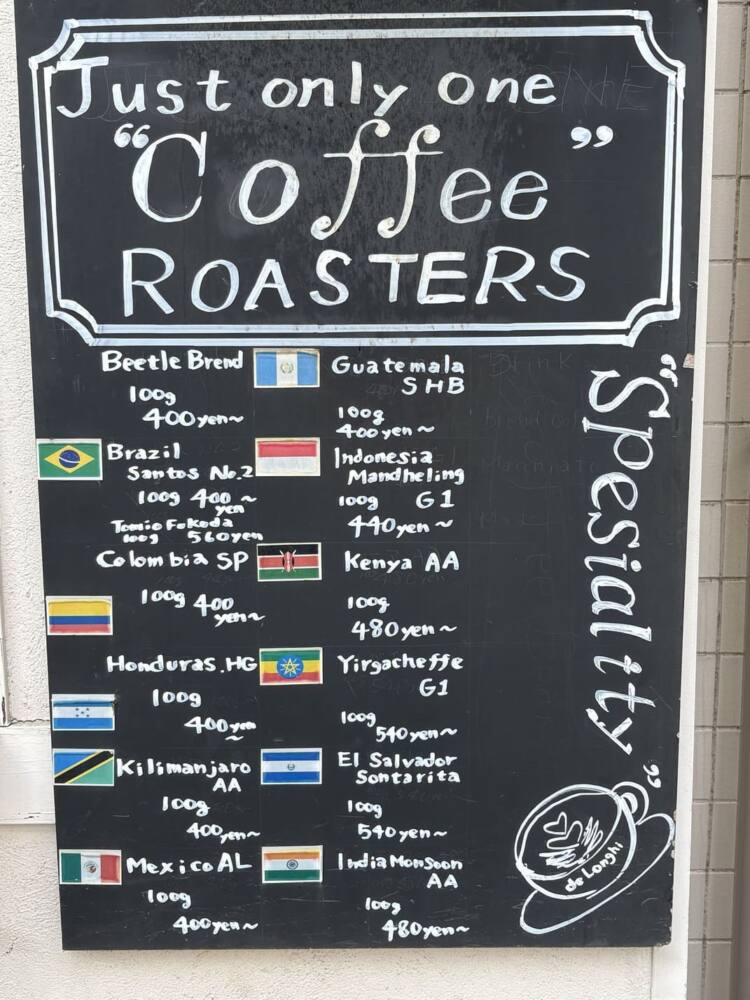 Just only one
“Coffee”
ROASTERS
Beetle Brend
100g
400yen~
Brazil
Santos No.2
100g 400~
yen
Tomio Fukuda
100g 560yen
Colombia SP
100g 400
yen~
Honduras.HG
100g
400yen
~
Kilimanjaro
AA
100g
400yen~
Mexico AL
100g
400yen~
Guatemala
SHB
100g
400yen~
Indonesia
Mandheling
100g G1
440yen~
Kenya AA
100g
480yen~
Yirgacheffe
G1
100g
540yen~
El Salvador
Santarita
100g
540yen~
India Monsoon
AA
100g
480yen~
“Spesialitty”
de Longhi